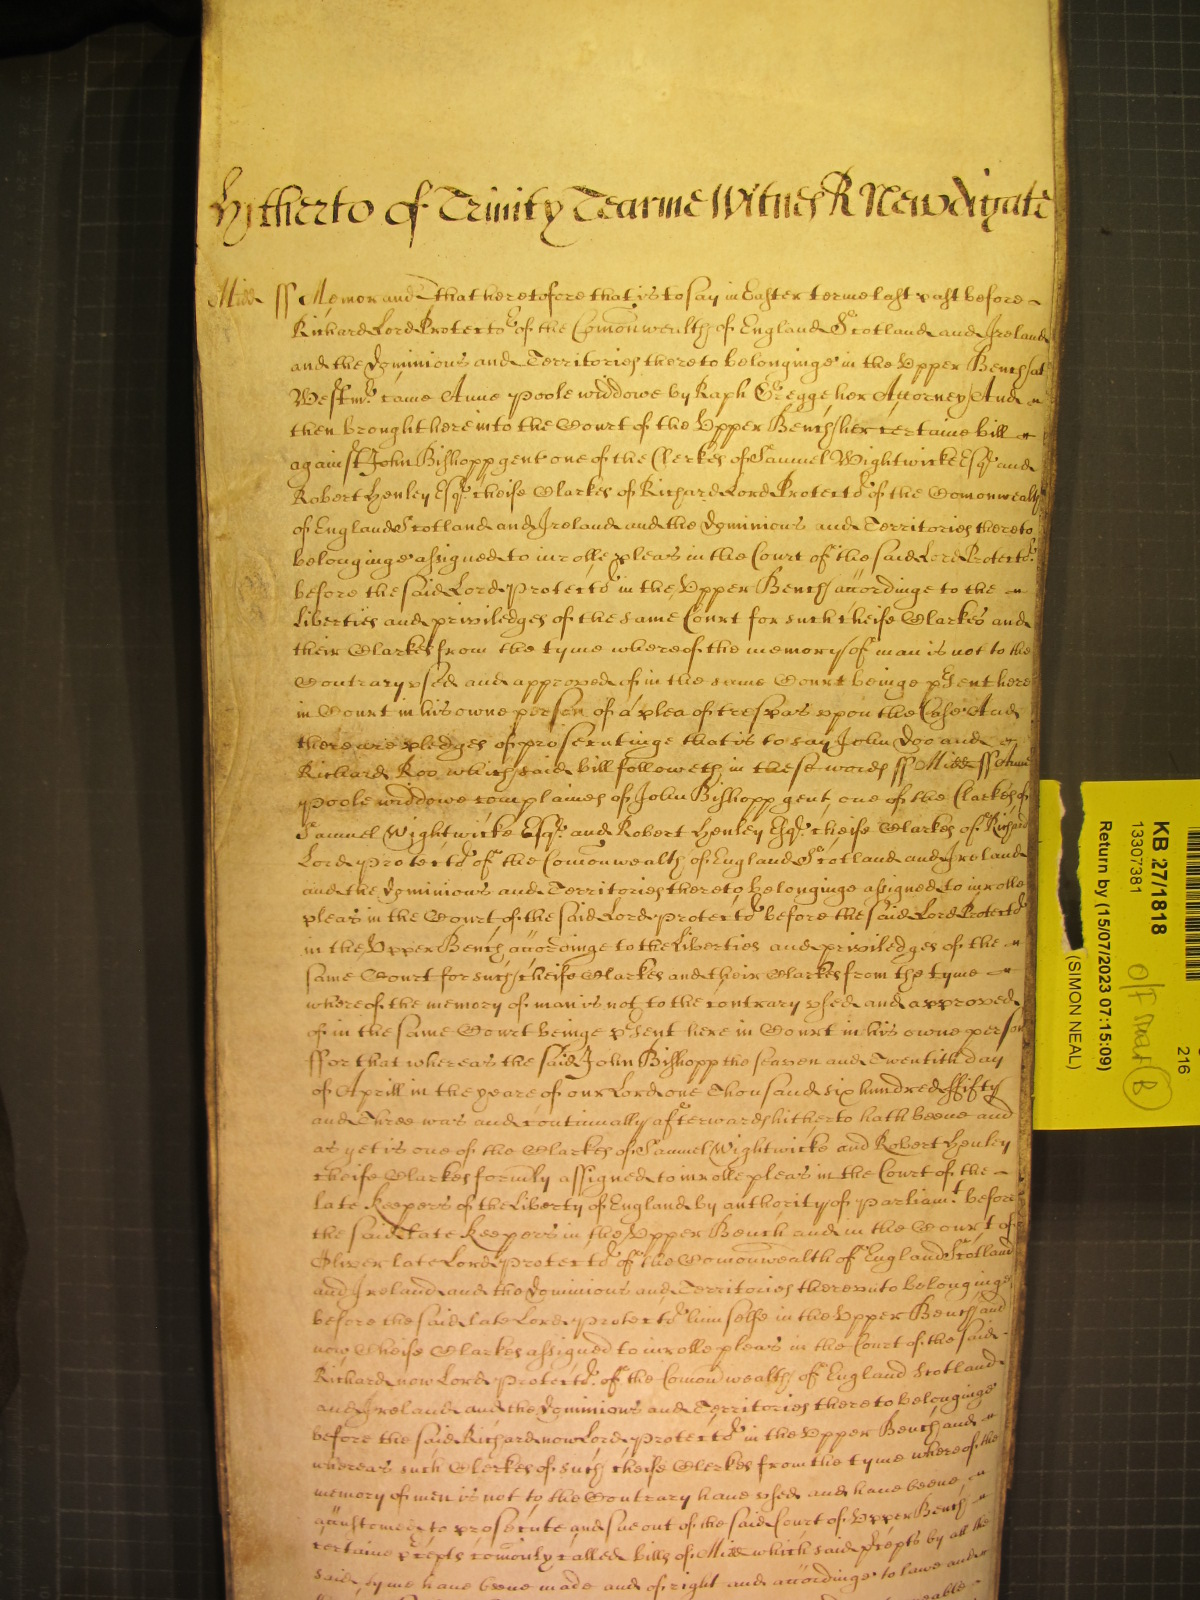 Hitherto of Trinity Tearme Witnes R Newdigate
Midd ss Memorand that heretofore that is to say in Easter terme last past before
Richard Lord Protector of the Comonwealth of England Scotland and Ireland
and the Dominions and Territories thereto belonginge in the Upper Bench at
Westmr came Anne Poole widdowe by Raph Gregge her Attorney And
then brought here into the Court of the Upper Bench her certaine bill
against John Bishopp gent one of the Clerkes of Samuel Wightwicke Esqr and
Robert Henley Esqr cheife Clarkes of Richard Lord Protector of the Comonwealth
of England Scotland and Ireland and the Dominions and Territories thereto
belonginge assigned to inrolle pleas in the Court of the said Lord Protector
before the said Lord Protector in the Upper Bench accordinge to the
Liberties and priviledges of the same Court for such cheife Clarkes and
their Clarkes from the tyme whereof the memory of man is not to the
Contrary used and approved of in the same Court beinge psent here
in Court in his owne person of a plea of trespas upon the Case And
there are pledges of prosecutinge that is to say John Doo and
Richard Roo which said bill followeth in these words ss Midd ss Anne
Poole widdowe complaines of John Bishopp gent one of the Clarkes of
Samuel Wightwicke Esqr and Robert Henley Esqr cheife Clarkes of Richard
Lord Protector of the Comonwealth of England Scotland and Ireland
and the Dominions and Territories thereto belonginge assigned to inrolle
pleas in the Court of the said Lord Protector before the said Lord Protector
in the Upper Bench accordinge to the Liberties and priviledges of the
same Court for such cheife Clarkes and their Clarkes from the tyme
whereof the memory of man is not to the contrary used and approved
of in the same Court beinge psent here in Court in his owne person
ffor that whereas the said John Bishopp the seaven and Twentith day
of Aprill in the yeare of our Lord one Thousand six hundred ffifty
and Three was and continually afterwards hitherto hath beene and
as yet is one of the Clarkes of Samuel Wightwicke and Robert Henley
cheife Clarkes formly assigned to inrolle pleas in the Court of the
late Keepers of the Liberty of England by authority of Parliamt before
the said late Keepers in the Upper Bench and in the Court of
Oliver late Lord Protector of the Comonwealth of England Scotland
and Ireland and the Dominions and Territories thereunto belonginge
before the said late Lord Protector himselfe in the Upper Bench and
now Cheife Clarkes assigned to inrolle pleas in the Court of the said
Richard now Lord Protector of the Comonwealth of England Scotland
and Ireland and the Dominions and Territories thereto belonginge
before the said Richard now Lord Protector in the Upper Bench and
whereas such Clerkes of such cheife Clerkes from the tyme whereof the
memory of men is not to the Contrary have used and have beene
accustomed to prosecute and sue out of the said Court of Upper Bench
certaine precepts comonly called bills of Midd which said precepts by all the
said tyme have beene made and of right and accordinge to lawe and
KB 27/1818
13307381
Return by (15/07/2023 07:15:09)
(SIMON NEAL)
216
B